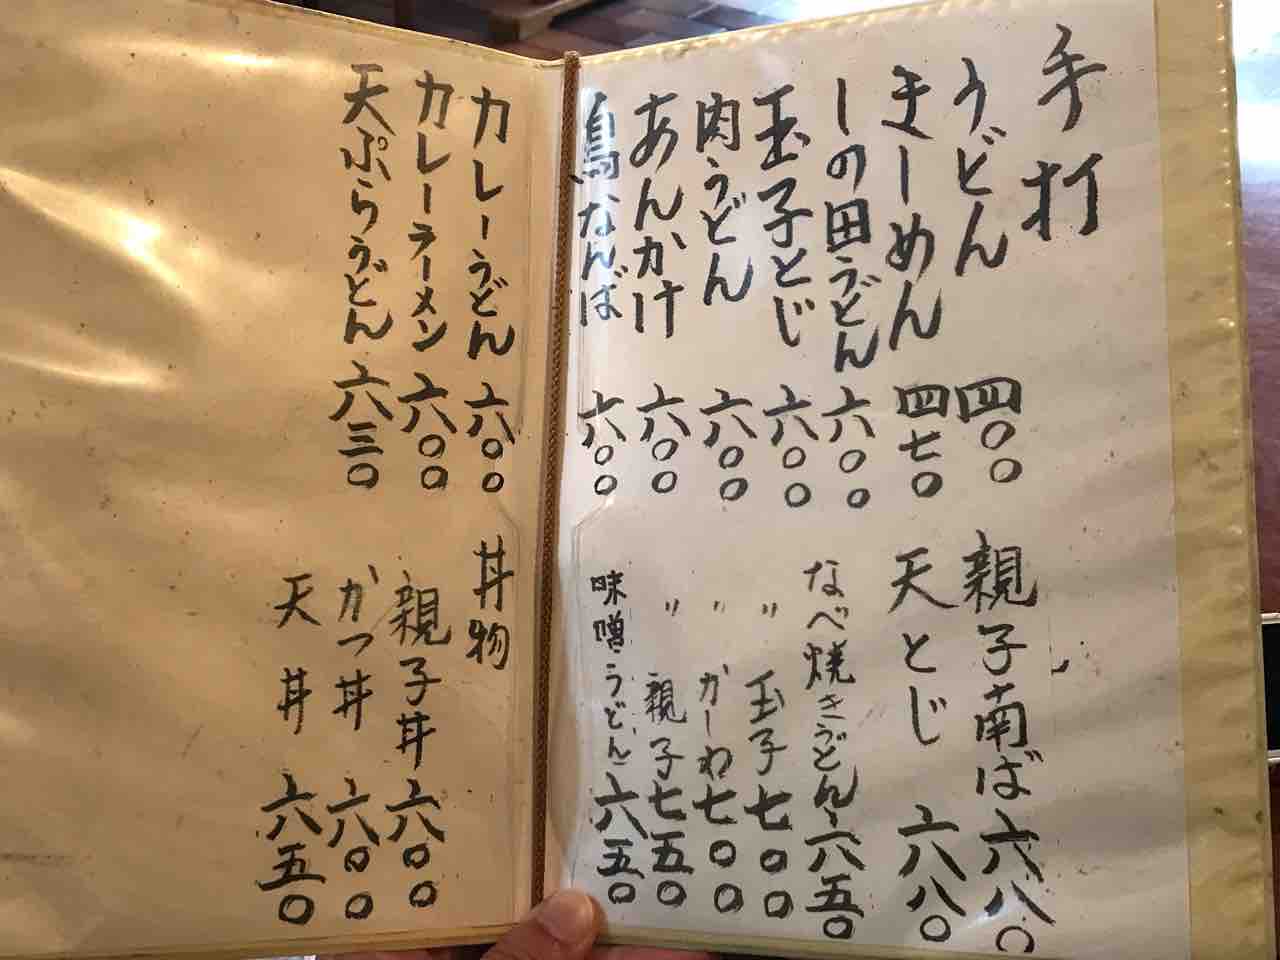 手打
うどん 四〇〇
きーめん 四七〇
しの田うどん 六〇〇
玉子とじ 六〇〇
肉うどん 六〇〇
あんかけ 六〇〇
鳥なんば 六〇〇
親子南ば 六八〇
天とじ 六八〇
なべ焼きうどん 六五〇
〃 玉子 七〇〇
〃 かしわ 七〇〇
〃 親子 七五〇
味噌うどん 六五〇
カレーうどん 六〇〇
カレーラーメン 六〇〇
天ぷらうどん 六三〇
丼物
親子丼 六〇〇
かつ丼 六〇〇
天丼 六五〇